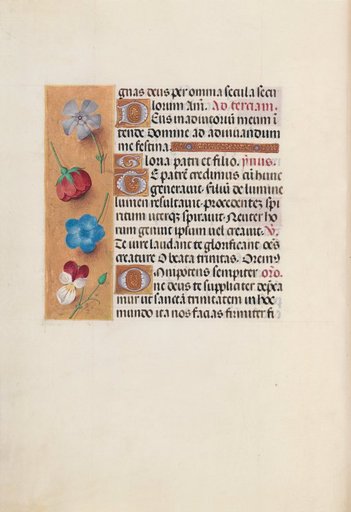 gnas deus per omnia secula secu
lorum Am̄. Ad terciam.
Deus in adiutoriū meum ī
tende Domine ad adiuuandum
me festina.
Gloria patri et filio. ymnus.
Te patrē credimus cū hunc
generauit filiū de lumine
lumen resultauit procedentē spi
ritum uterq spirauit. Neuter ho
rum genuit ipsum uel creauit. V̄.
Te iure laudant te glorificant oēs
creature O beata trinitas. Oremꝰ
Omnipotens sempiter oro.
ne deus te suppliciter depca
mur ut sanctā trinitatem in hoc
mundo ita nos facias firmiter fi